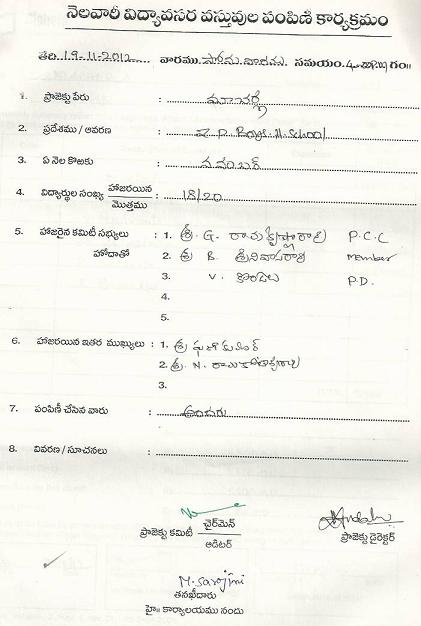 నెలవారీ విద్యావసర వస్తువుల పంపిణీ కార్యక్రమం
తేది.19-11-2012...... వారము.సోమవారము. సమయం.4-00PM గం॥
1. ప్రాజెక్టు పేరు :
2. ప్రదేశము / ఆవరణ : Z.P. Boys.H.School
3. ఏ నెల కొఱకు : నవంబర్
4. విద్యార్థుల సంఖ్య హాజరయిన / మొత్తము : 18/20
5. హాజరైన కమిటీ సభ్యులు : 1. శ్రీ. G. రామకృష్ణారావు P.C.C
హోదాతో 2. శ్రీ B. శ్రీనివాసరావు Member
3. V. కొండలు P.D.
4.
5.
6. హాజరయిన ఇతర ముఖ్యులు : 1. శ్రీ
2. శ్రీ. N.
3.
7. పంపిణీ చేసిన వారు : అందరు
8. వివరణ / సూచనలు :
ప్రాజెక్టు కమిటీ ఛైర్‌మెన్ / ఆడిటర్
ప్రాజెక్టు డైరెక్టర్
M. Sarojini
తనఖీదారు
హై॥ కార్యాలయము నందు